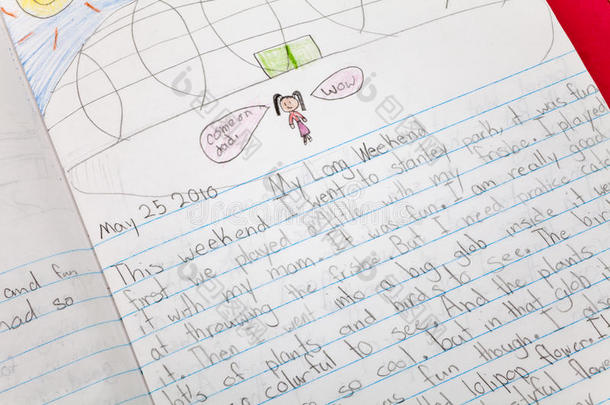 come on dad!
wow
May 25 2010 My Long Weekend
This weekend I went to stanley park, it was fun
first we played with my frisbe. I played
it with my mom. It was fun. I am really good
at throwing the frisbe. But I need pratice
it. Then I went into a big glob inside it
lots of plants and birds to see. The
so colorful to see. And the plants
so cool, but in that glob it
was fun though. I also
lolipop flower. I
flower
and fun
had so